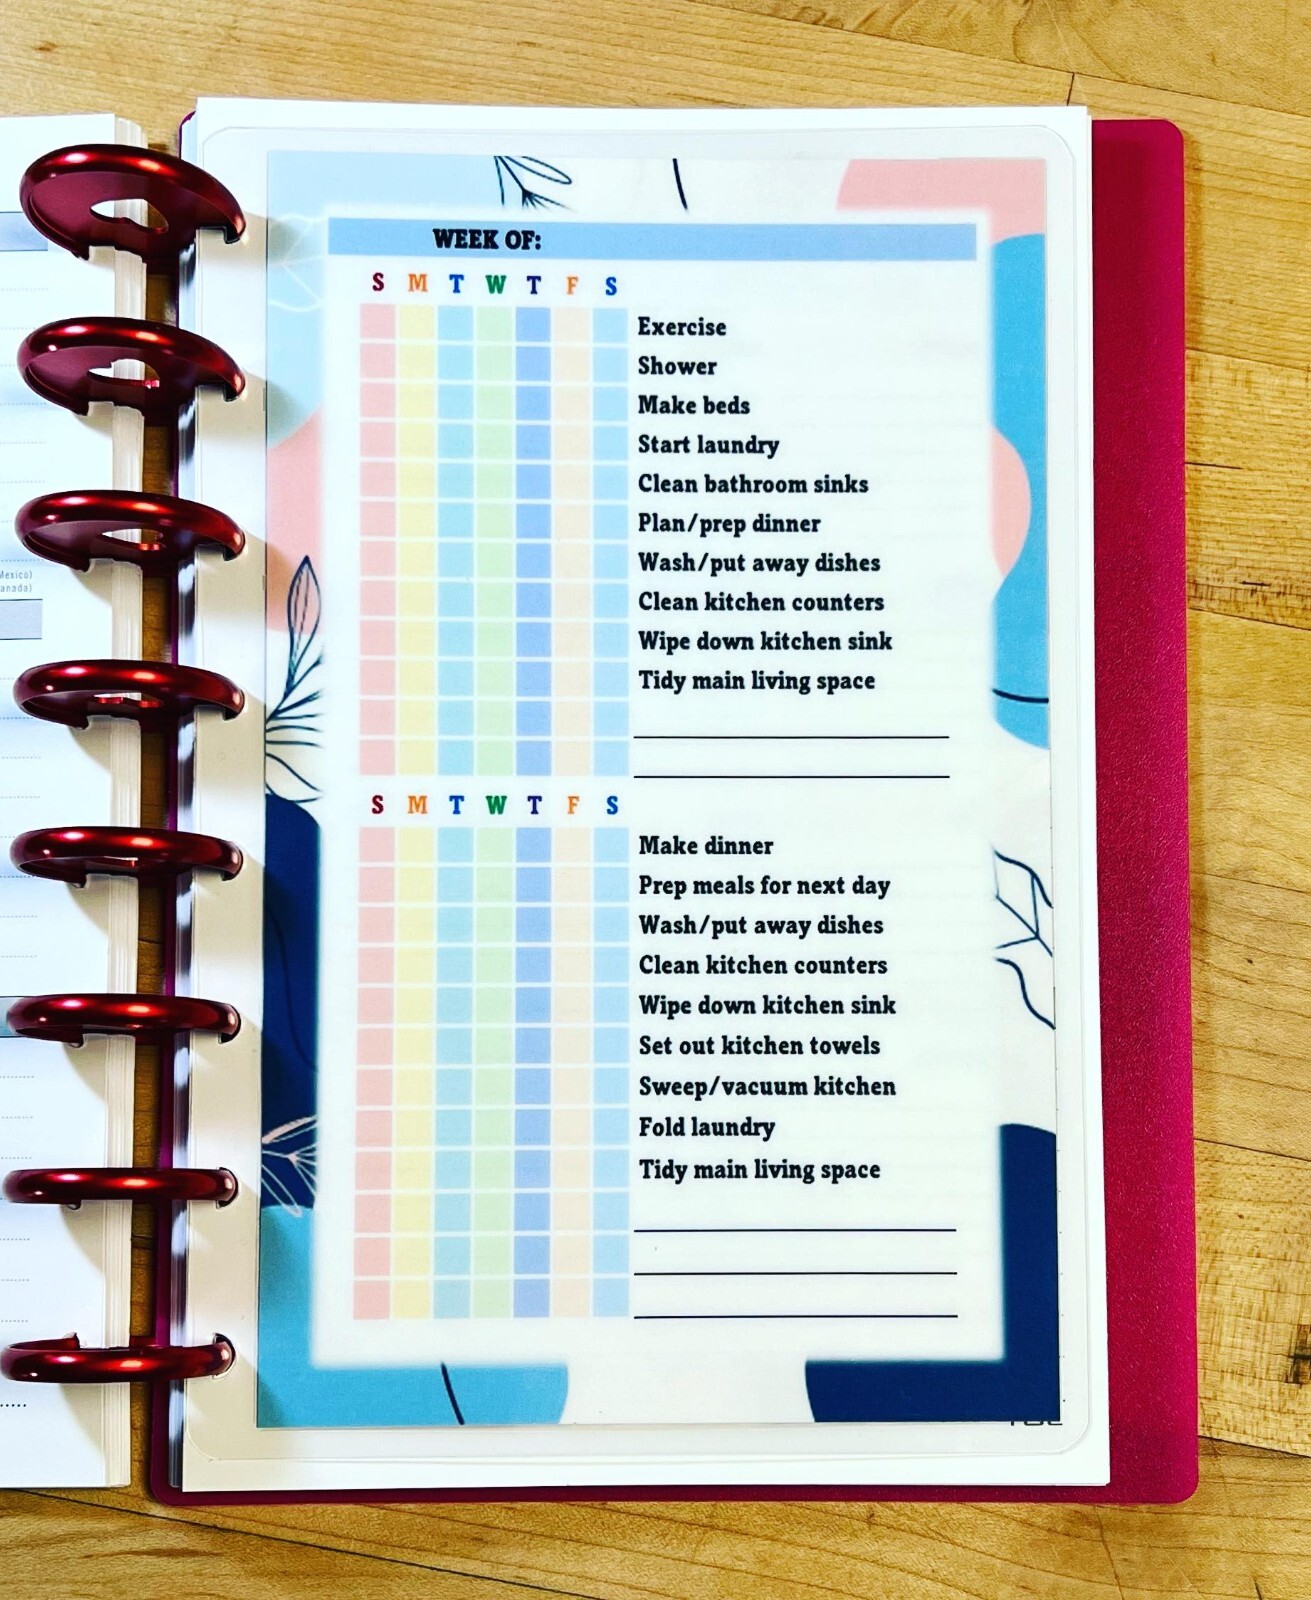 WEEK OF:
S M T W T F S
Exercise
Shower
Make beds
Start laundry
Clean bathroom sinks
Plan/prep dinner
Wash/put away dishes
Clean kitchen counters
Wipe down kitchen sink
Tidy main living space
S M T W T F S
Make dinner
Prep meals for next day
Wash/put away dishes
Clean kitchen counters
Wipe down kitchen sink
Set out kitchen towels
Sweep/vacuum kitchen
Fold laundry
Tidy main living space